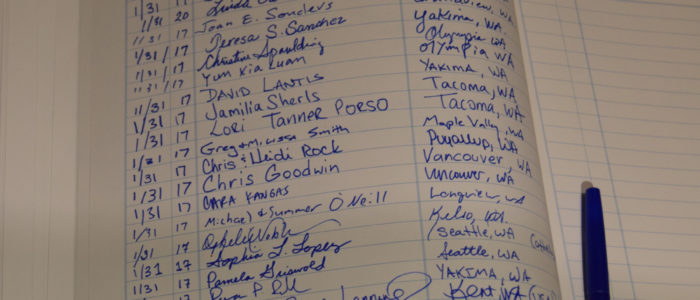 1/31 17
11/31 20 Joan E. Sanders Yakima, WA
11/31 17 Teresa S. Sanchez Olympia WA
1/31/17 Christine Spaulding Olympia WA
1/31/17 Yun Xia Kuan YAKIMA, WA
11/31/17 DAVID LANTIS Tacoma, WA
11/31 17 Jamilia Sherls Tacoma, WA
1/31 17 LORI TANNER PORSO Maple Valley, WA
1/31 17 Greg & Melissa Smith Puyallup, WA
1/31 17 Chris & Heidi Rock Vancouver, WA
1/31 17 Chris Goodwin Vancouver, WA
1/31 17 CARA KANGAS Longview, WA
1/31 17 Michael & Summer O'Neill Kelso, WA
1/31 17 Seattle, WA
1/31 17 Sophia L. Lopez Seattle, WA
1/31 17 Pamela Griswold YAKIMA, WA
Kent, WA